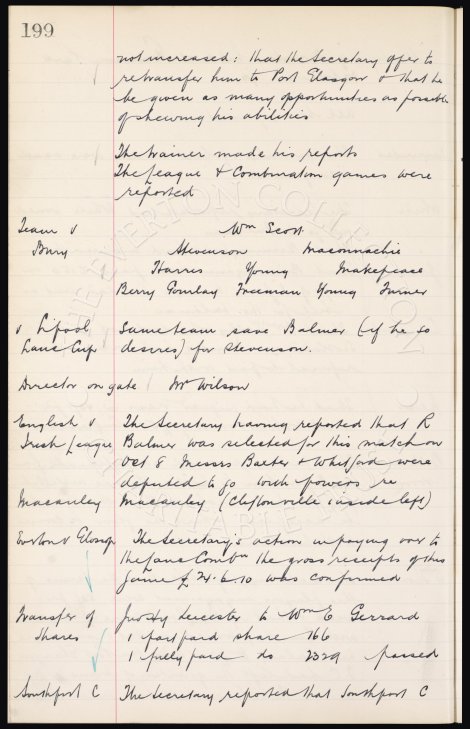 199
not increased: that the Secretary offer to
retransfer him to Port Glasgow & that he
be given as many opportunities as possible
of shewing his abilities
The trainer made his reports
The League & Combination games were
reported
Team v Wm Scott
Bury Stevenson Maconnachie
Harris Young Makepeace
Berry Gourlay Freeman Young Turner
v Lipool Same team save Balmer (if he so
Lancs Cup desires) for Stevenson.
Director on gate Mr Wilson
English v The Secretary having reported that R
Irish League Balmer was selected for this match on
Oct 8 Messrs Baxter & Whitford were
deputed to go with powers re
Macauley Macauley (Cliftonville inside left)
Everton v Glossop The Secretary's action in paying over to
the Lancs Combn the gross receipts of this
game £24.6.10 was confirmed
Transfer of Leicester to Wm E Gerrard
Shares 1 part paid share 166
1 fully paid do 2329 passed
Southport C The Secretary reported that Southport C
THE EVERTON COLLECTION
CHARITABLE TRUST